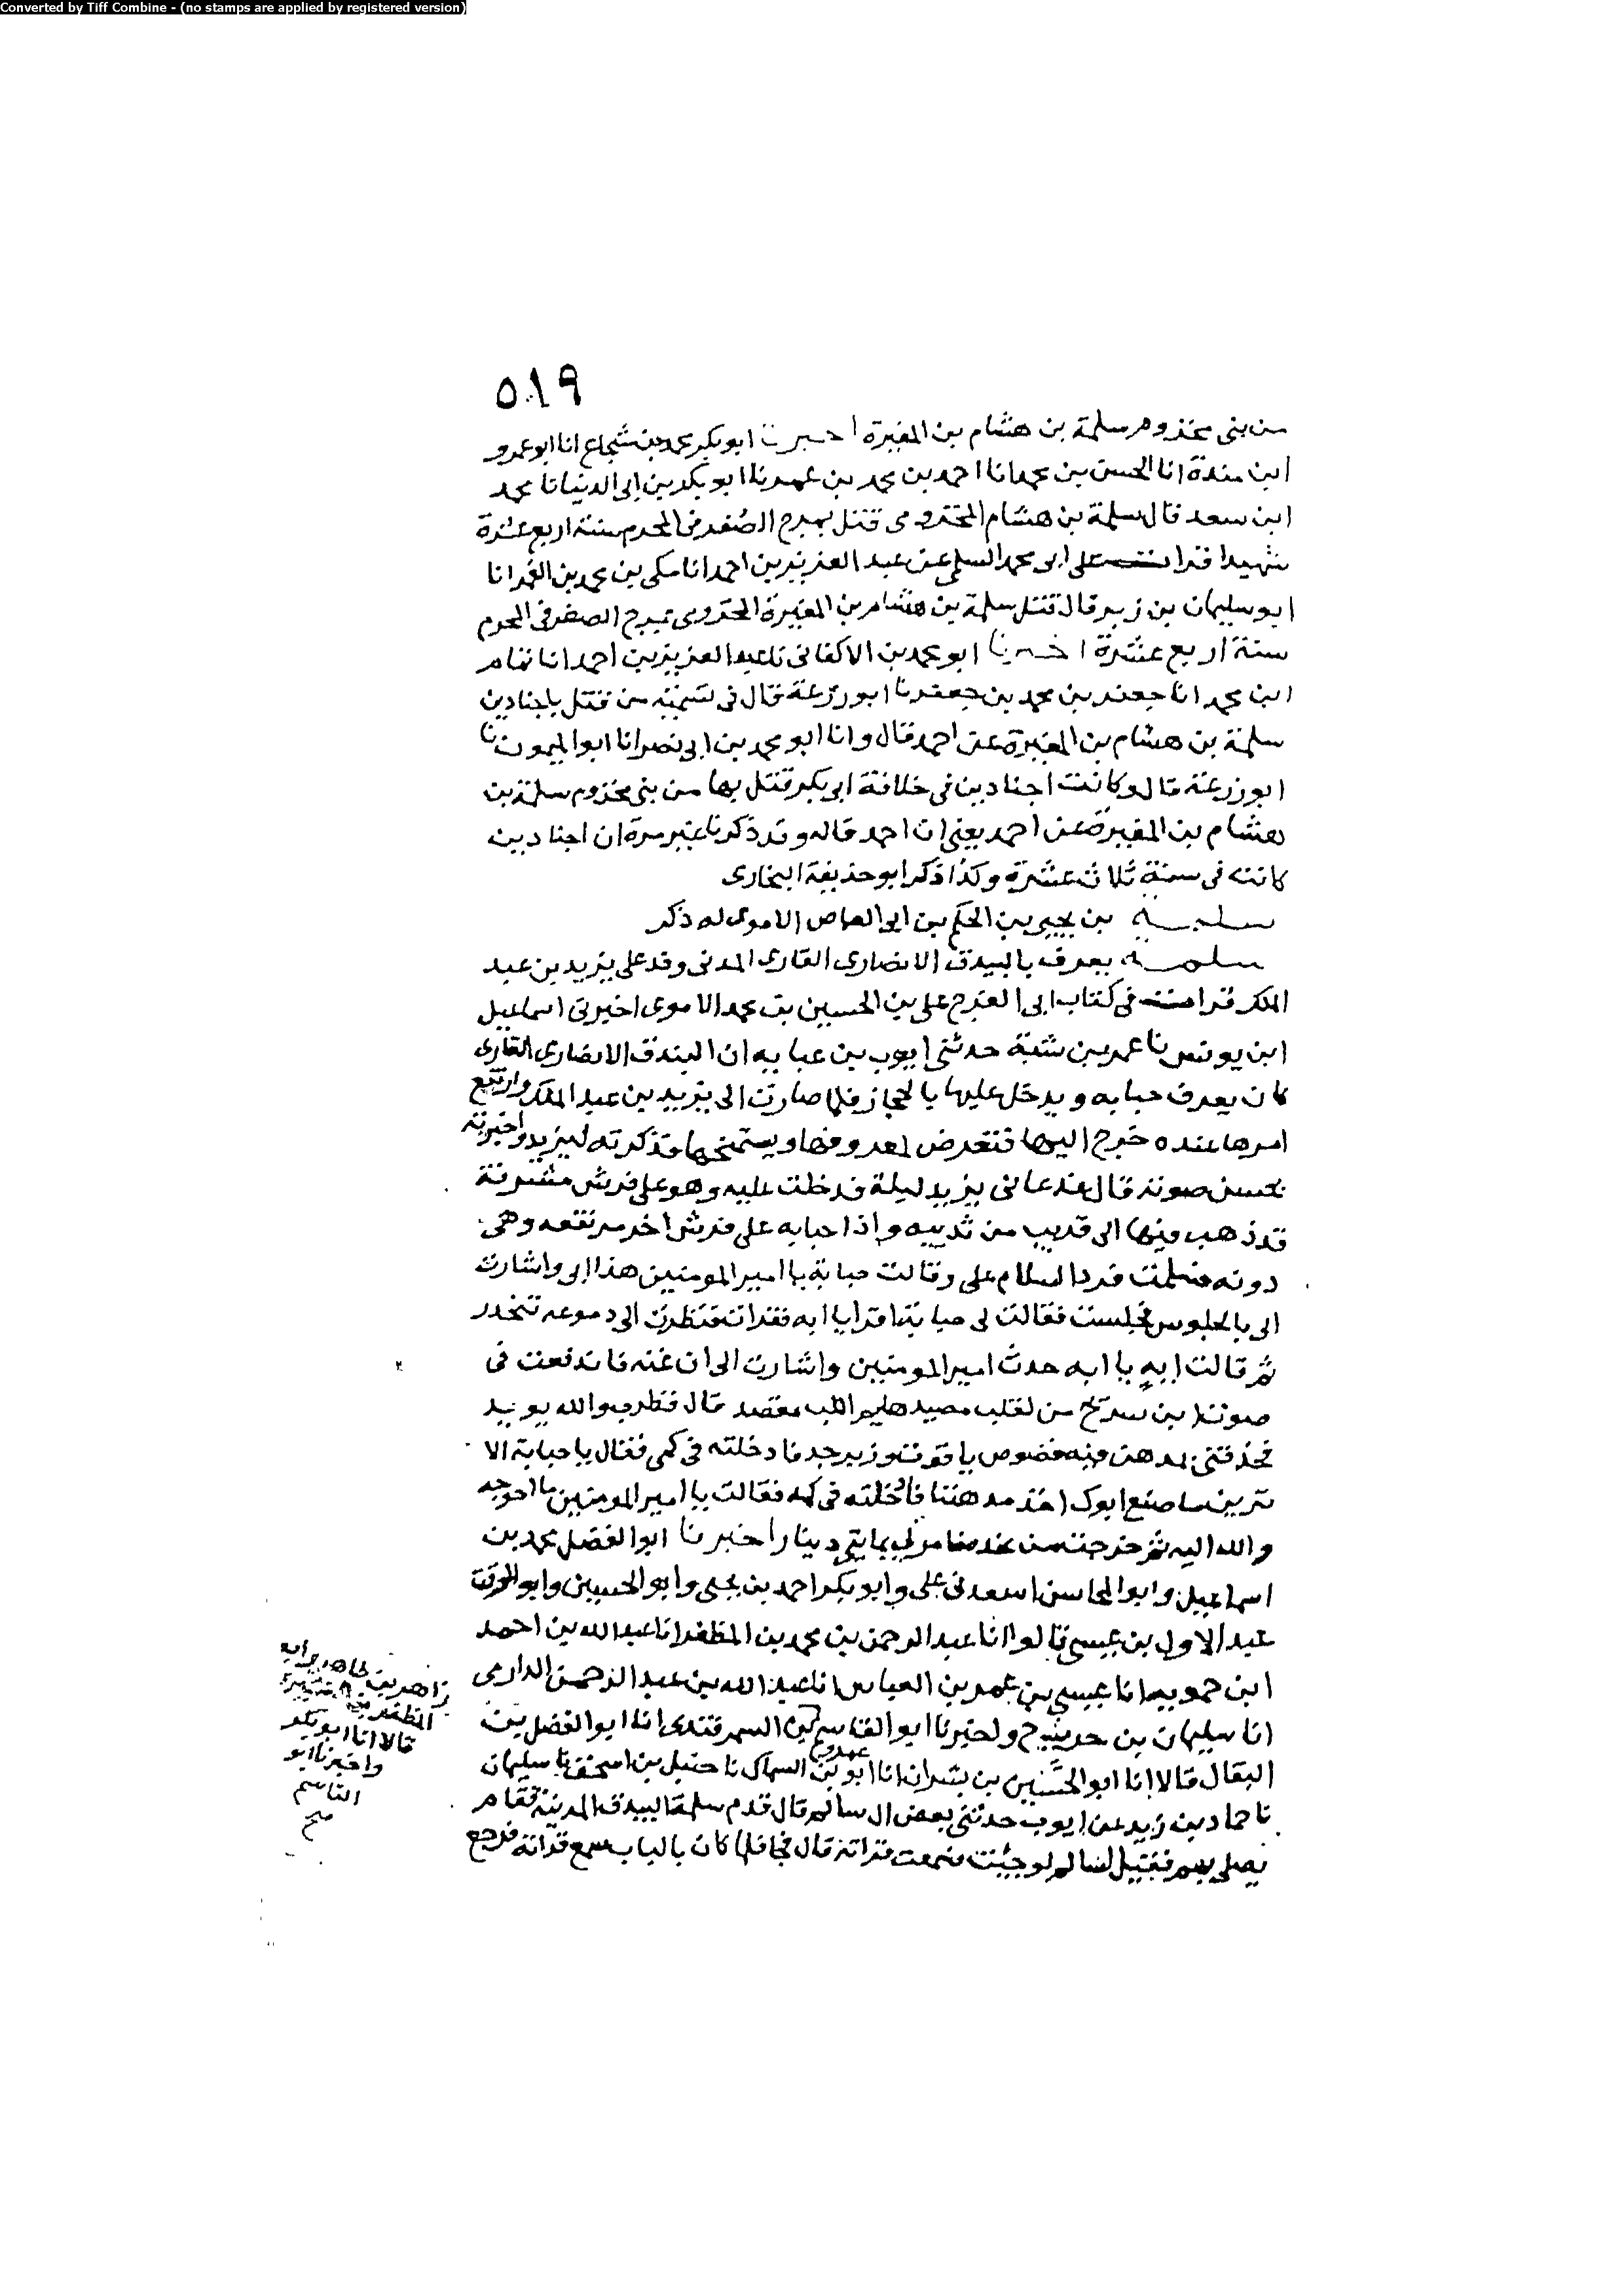 Converted by Tiff Combine - (no stamps are applied by registered version)
٥١٩
من بنى مخزوم سلمة بن هشام بن المغيرة اخبرنا ابو بكر محمد بن شجاع انا ابو عمرو
ابن مندة انا الحسن بن محمد انا احمد بن محمد بن عمر نا ابو بكر بن ابى الدنيا نا محمد
ابن سعد قال سلمة بن هشام المخزومى قتل بمرج الصفر فى المحرم سنة اربع عشرة
شهيدا قرات على ابى محمد السلمى عن عبد العزيز بن احمد انا مكى بن محمد بن الغمر انا
ابو سليمان بن زبر قال قتل سلمة بن هشام بن المغيرة المخزومى بمرج الصفر فى المحرم
سنة اربع عشرة اخبرنا ابو محمد بن الاكفانى نا عبد العزيز بن احمد انا تمام
ابن محمد انا جعفر بن محمد بن جعفر نا ابو زرعة قال فى تسمية من قتل باجنادين
سلمة بن هشام بن المغيرة عن احمد قال وانا ابو محمد بن ابى نصر انا ابو الميمون نا
ابو زرعة قال وكانت اجنادين فى خلافة ابى بكر قتل بها من بنى مخزوم سلمة بن
هشام بن المغيرة عن احمد يعنى ان احمد قاله وقد ذكرنا غير مرة ان اجنادين
كانت فى سنة ثلاث عشرة وكذا ذكر ابو حذيفة البخارى
سلمة بن يحيى بن الحكم بن ابى العاص الاموى له ذكر
سلمة يعرف بالبيدق الانصارى القارى المدنى وفد على يزيد بن عبد
الملك قرات فى كتاب ابى الفرج على بن الحسين بن محمد الاموى اخبرنى اسماعيل
ابن يونس نا عمر بن شبة حدثنى ايوب بن عبايه ان البيذق الانصارى القارى
كان يعرف حبابه ويدخل عليها بالحجاز فلما صارت الى يزيد بن عبد الملك وارتفع
امرها عنده خرج اليها فتعرض لمعروفها ويستمنحها فذكرته ليزيد واخبرته
بحسن صوته قال فدعانى يزيد ليلة فدخلت عليه وهو على فرش مشرفة
قد ذهب فيها الى قريب من ثدييه واذا حبابه على فرش اخر مرتفعه وهى
دونه فسلمت فرد السلام على وقالت حبابة يا امير المومنين هذا ابى واشارت
الى بالجلوس فجلست فقالت لى حبابة اقرا يا ابه فقرات فنظرت الى دموعه تنحدر
ثم قالت ايه يا ابه حدث امير المومنين واشارت الى ان غنه فاندفعت فى
صوت ابن سريج من لقلب مصيد هايم القلب مقصد قال فطرب والله يزيد
فحذفنى بمدهن فيه فصوص ياقوت وزبرجد فادخلته فى كمى فقال يا حبابة الا
ترين ما صنع ابوك اخذ مدهننا فادخلته فى كمه فقالت يا امير المومنين ما احوجه
والله اليه ثم خرجت من عنده فامر لى بمايتى دينار اخبرنا ابو الفضل محمد بن
اسماعيل وابو المحاسن اسعد بن على وابو بكر احمد بن يحيى وابو الحسين وابو الوقت
عبد الاول بن عيسى قالوا انا عبد الرحمن بن محمد بن المظفر انا عبد الله بن احمد
ابن حمويه انا عيسى بن عمر بن العباس انا عبد الله بن عبد الرحمن الدارمى
انا سليمان بن حرب ح واخبرنا ابو القاسم بن السمرقندى انا ابو الفضل بن
البقال قالا انا ابو الحسين بن بشران انا ابو عمرو بن السماك نا حنبل بن اسحق نا سليمان
نا حماد بن زيد عن ايوب حدثنى بعض ال سالم قال قدم سلمة البيدق المدينة فقام
يصلى بهم فقيل لسالم لو جئت فسمعت قراته قال فجا فلما كان بالباب سمع قراته فرجع
زاهر بن طاهر وابو
المظفر بن القشيرى
قالا انا ابو بكر
واخبرنا ابو
القاسم
صح